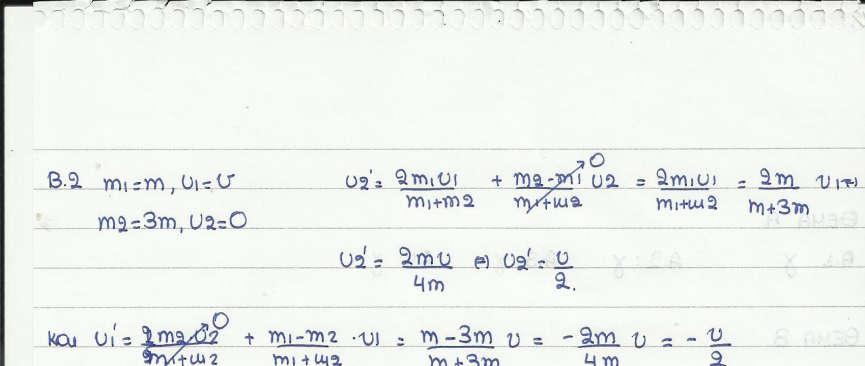 Β.2 m1=m, υ1=υ υ2'= 2m1υ1/m1+m2 + m2-m1/m1+m2 υ2 → 0 = 2m1υ1/m1+m2 = 2m/m+3m υ1⇔
m2=3m, υ2=0
υ2'= 2mυ/4m ⇔ υ2'= υ/2.
και υ1'= 2m2υ2/m1+m2 → 0 + m1-m2/m1+m2 ·υ1 = m-3m/m+3m υ = -2m/4m υ = -υ/2